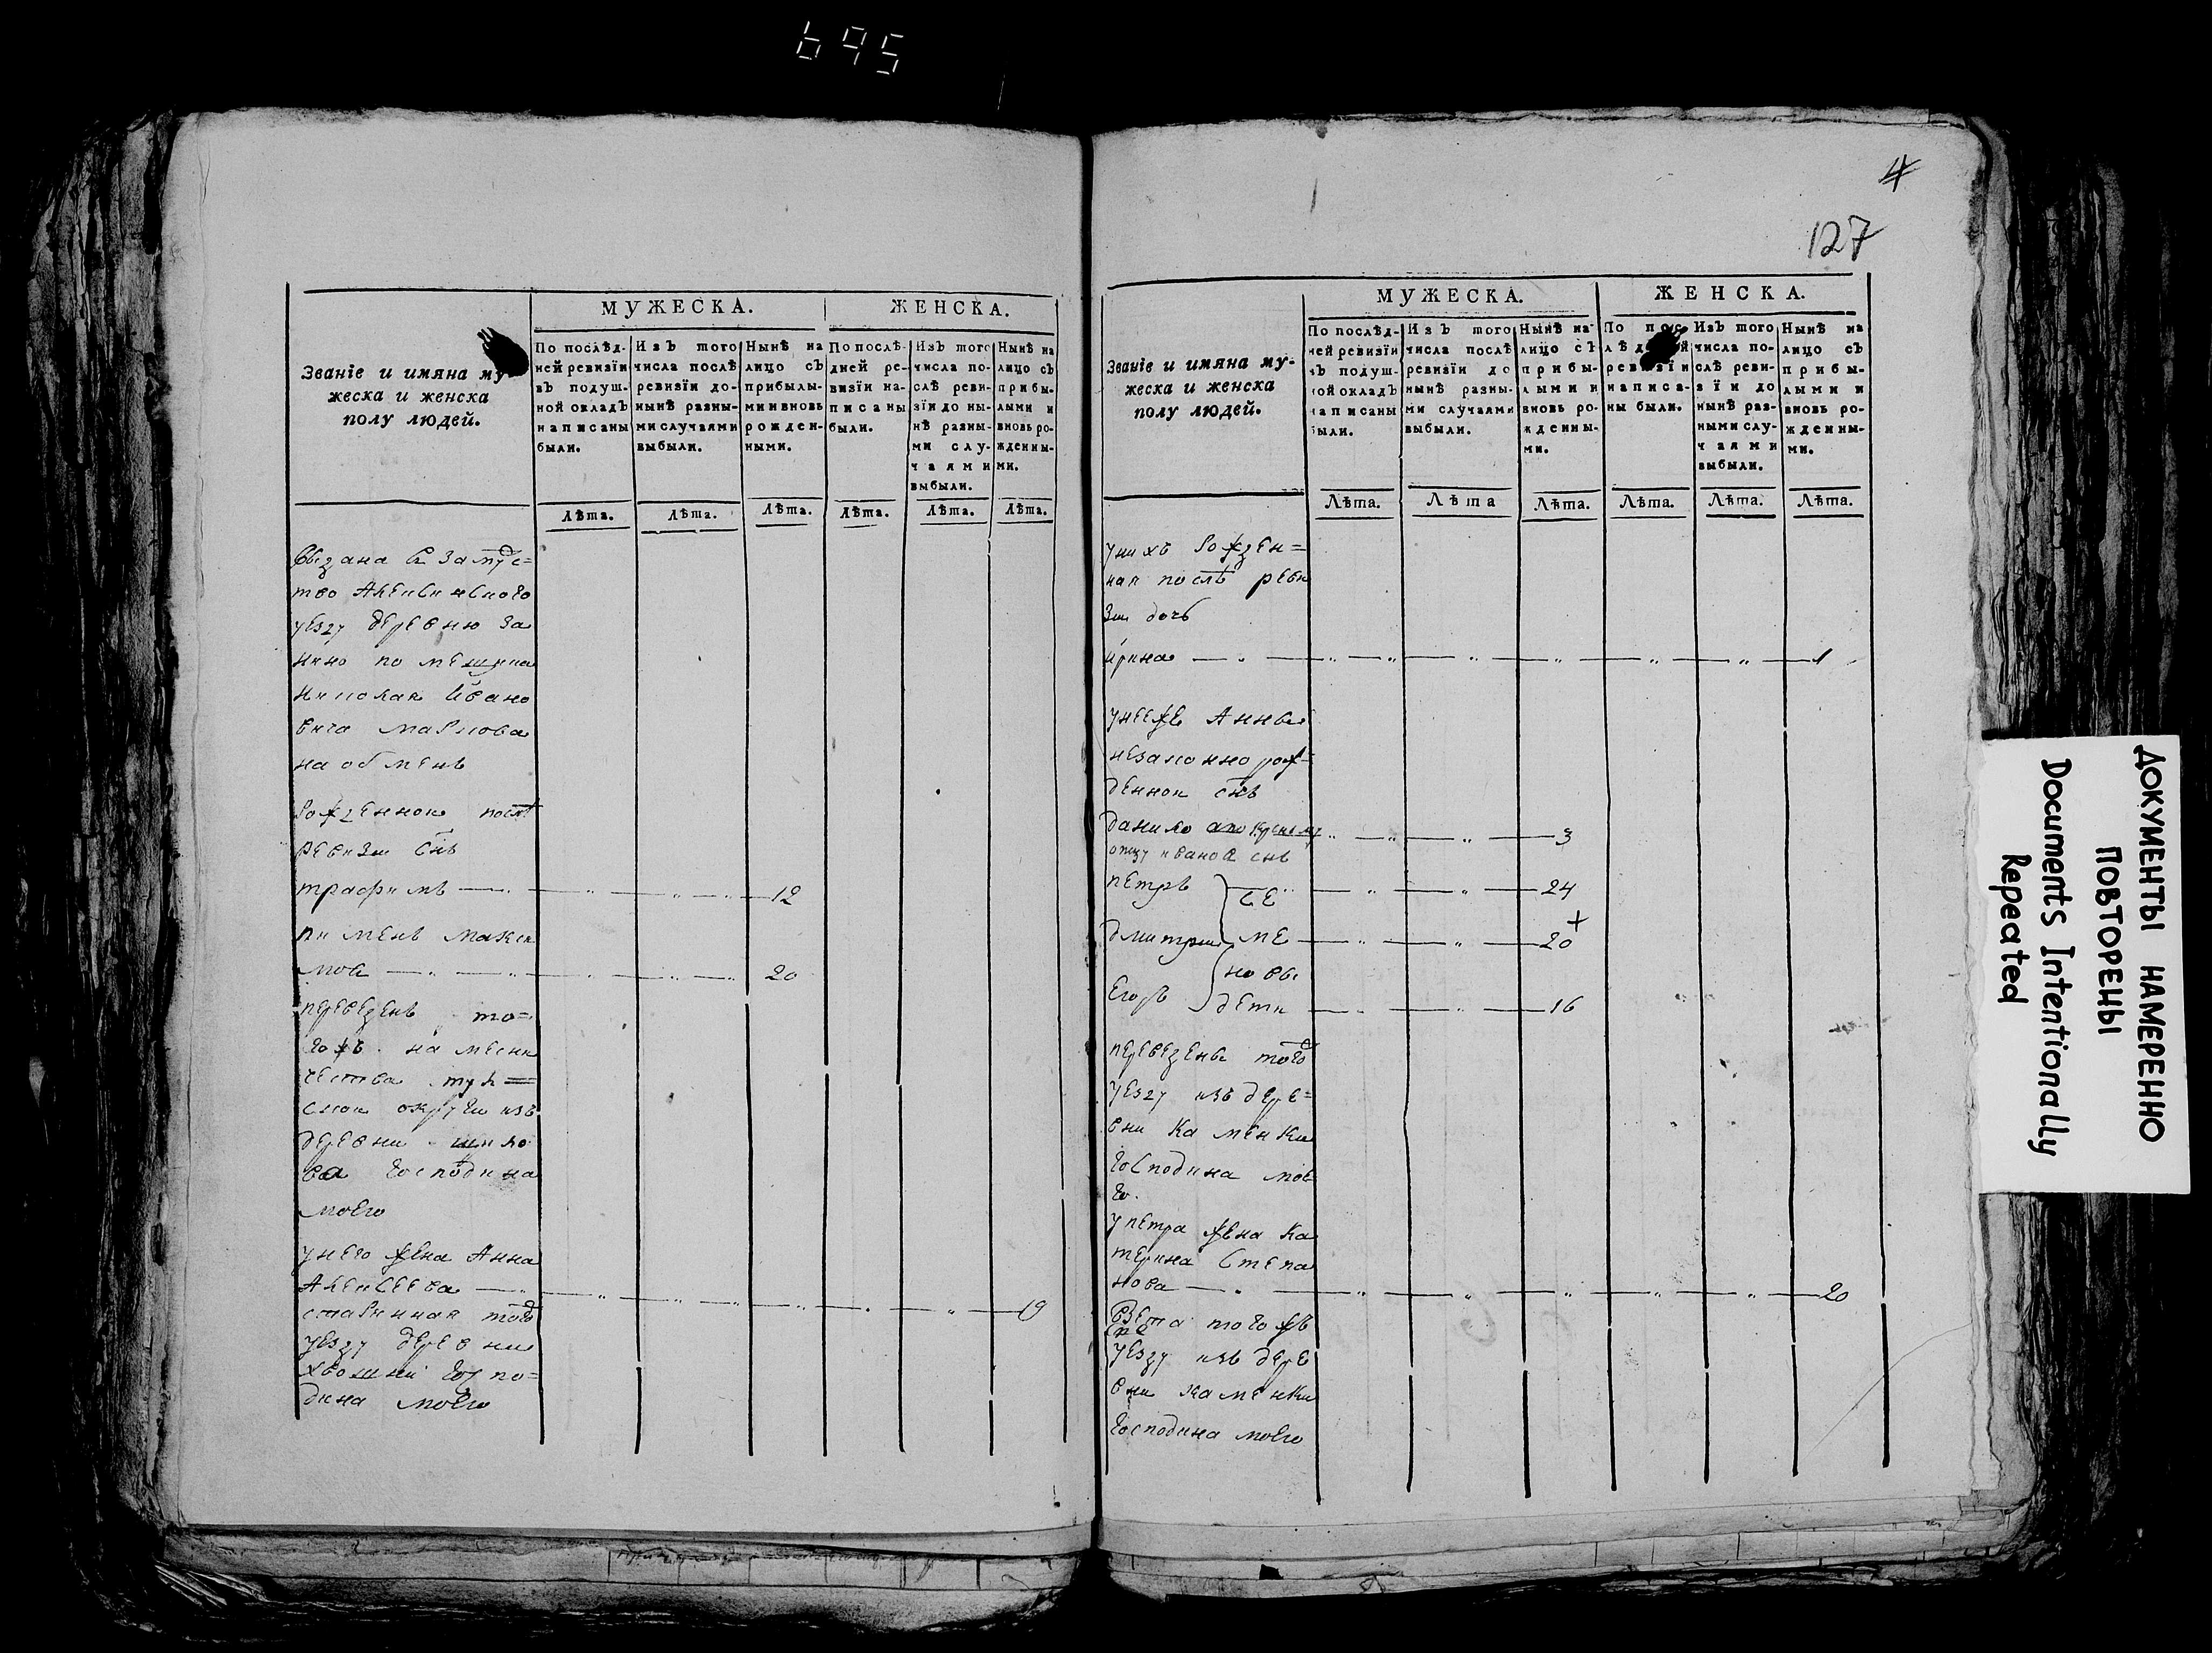 695
МУЖЕСКА.
ЖЕНСКА.
Званіе и имяна му-
жеска и женска
полу людей.
По послѣд-
ней ревизіи
въ подуш-
ной окладъ
написаны
были.
Изъ того
числа послѣ
ревизіи до-
нынѣ разны-
ми случаями
выбыли.
Нынѣ на
лицо съ
прибылы-
ми и вновь
рожден-
ными.
По послѣ-
дней ре-
визіи на-
писаны
были.
Изъ того
числа по-
слѣ реви-
зіи до ны-
нѣ разны-
ми слу-
чаями
выбыли.
Нынѣ на
лицо съ
прибы-
лыми и
вновь ро-
жденны-
ми.
Лѣта. Лѣта. Лѣта. Лѣта. Лѣта. Лѣта.
выдана в замуже=
тво Алексинского
уезду деревню
по мещика
николая Ивано
вича маслова
на обмень
Рожденнои послѣ
ревизии снъ
трафимъ 12
пименъ макси
мов 20
переведенъ то=
гожъ намесни
чества тул=
скои округи изъ
деревни шило
ва господина
моего
унего жена Анна
Алексеева 19
старинная тогож
уезду деревни
хвощни госпо=
дина моего
4
127
МУЖЕСКА.
ЖЕНСКА.
Званіе и имяна му-
жеска и женска
полу людей.
По послѣд-
ней ревизіи
въ подуш-
ной окладъ
написаны
были.
Изъ того
числа послѣ
ревизіи до
нынѣ разны-
ми случаями
выбыли.
Нынѣ на
лицо съ
прибы-
лыми и
вновь ро-
жденны-
ми.
По пос-
лѣдней
ревизіи
написа-
ны были.
Изъ того
числа по-
слѣ реви-
зіи до
нынѣ раз-
ными слу-
чаями
выбыли.
Нынѣ на
лицо съ
прибы-
лыми и
вновь ро-
жденны-
ми.
Лѣта. Лѣта Лѣта. Лѣта. Лѣта. Лѣта.
унихъ Рожден=
ная послѣ реви
зии дочь
ирина 1
унееже Анны
незаконно рож=
деннои снъ
данило а по крсному 3
отцу иванов снъ
петръ 24
дмитрии 20
Егоръ 16
се
ме
новы
дети
переведены тогож
уезду изъ дере=
вни Каменки
господина мое
го.
упетра жена Ка
терина Степа
нова 20
взета тогожъ
уезду изъ дере
вни каменки
господина моего
ДОКУМЕНТЫ НАМЕРЕННО
ПОВТОРЕНЫ
Documents Intentionally
Repeated